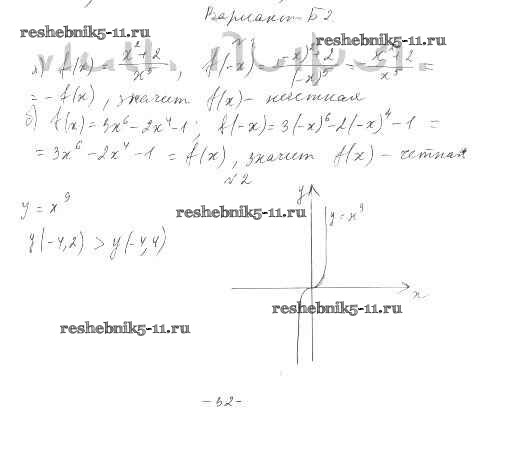 Вариант Б2
reshebnik5-11.ru
№1
reshebnik5-11.ru
а) f(x) = (x²+2)/x⁵, f(-x) = ((-x)²+2)/(-x)⁵ = - (x²+2)/x⁵ =
= -f(x), значит f(x) - нечетная
б) f(x) = 3x⁶ - 2x⁴ - 1; f(-x) = 3(-x)⁶ - 2(-x)⁴ - 1 =
= 3x⁶ - 2x⁴ - 1 = f(x), значит f(x) - четная
№2
y = x⁹
reshebnik5-11.ru
y
y = x⁹
y(-4,2) > y(-4,4)
x
reshebnik5-11.ru
reshebnik5-11.ru
-32-